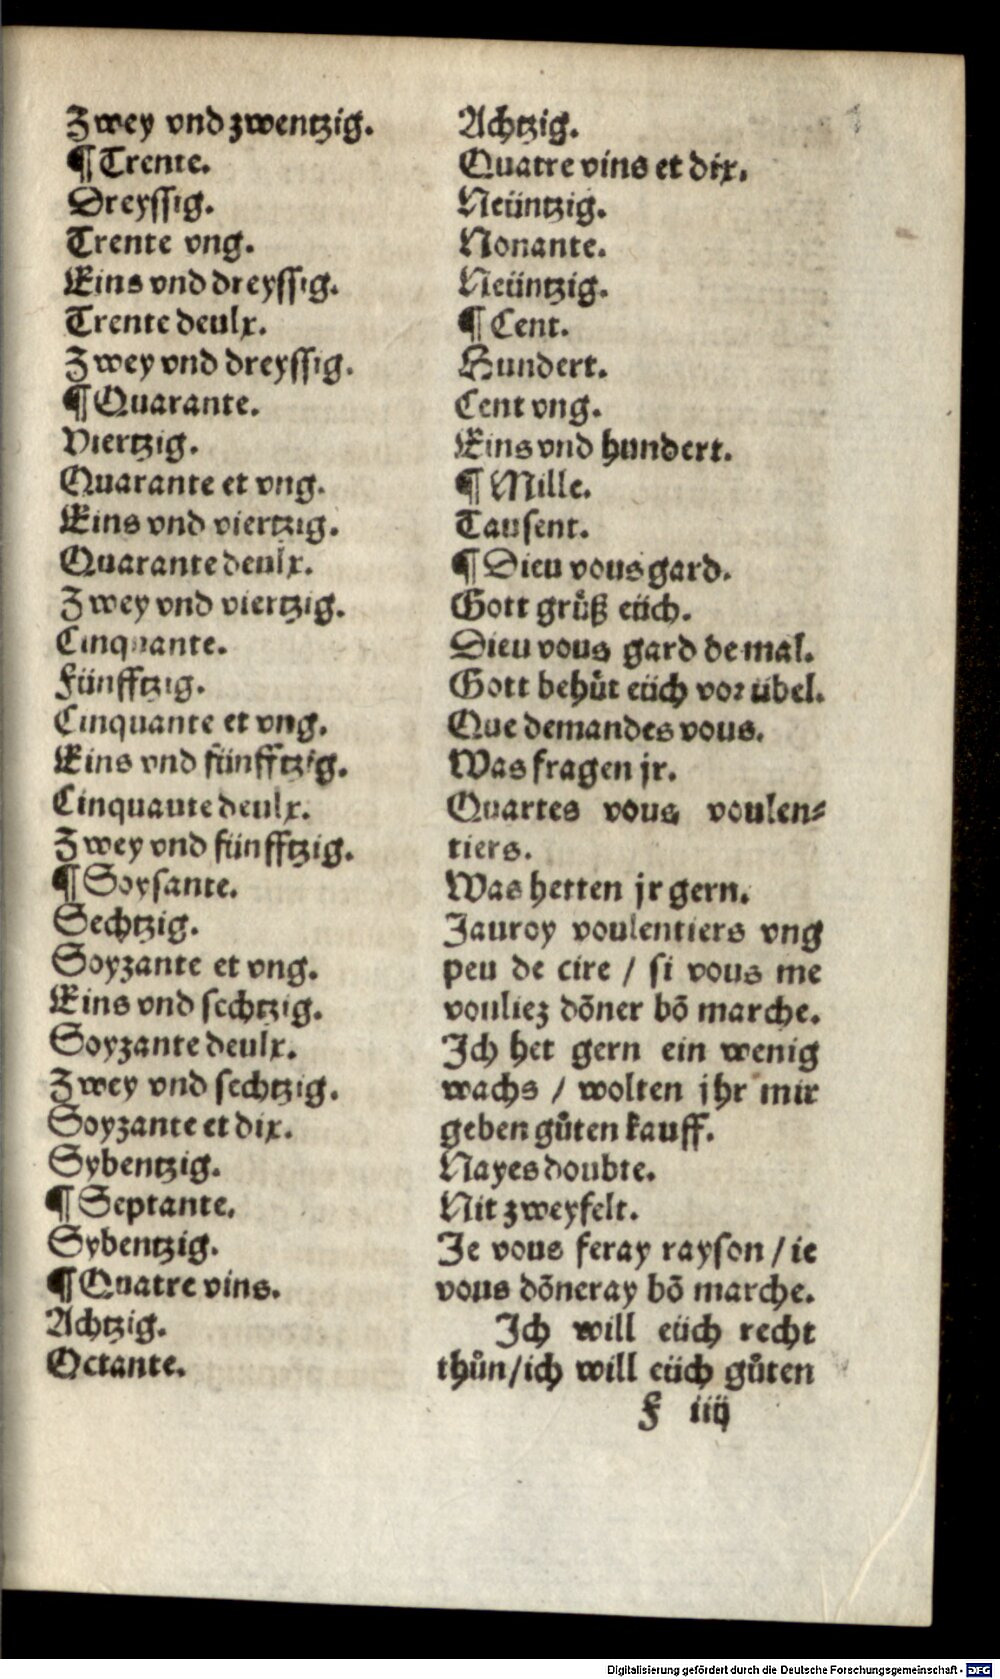 Zwey vnd zwentzig.
¶ Trente.
Dreyssig.
Trente vng.
Eins vnd dreyssig.
Trente deulx.
Zwey vnd dreyssig.
¶ Quarante.
Viertzig.
Quarante et vng.
Eins vnd viertzig.
Quarante deulx.
Zwey vnd viertzig.
Cinquante.
Fünfftzig.
Cinquante et vng.
Eins vnd fünfftzig.
Cinquaute deulx.
Zwey vnd fünfftzig.
¶ Soysante.
Sechtzig.
Soyzante et vng.
Eins vnd sechtzig.
Soyzante deulx.
Zwey vnd sechtzig.
Soyzante et dix.
Sybentzig.
¶ Septante.
Sybentzig.
¶ Quatre vins.
Achtzig.
Octante.
Achtzig.
Quatre vins et dix.
Neüntzig.
Nonante.
Neüntzig.
¶ Cent.
Hundert.
Cent vng.
Eins vnd hundert.
¶ Mille.
Tausent.
¶ Dieu vous gard.
Gott grůß eüch.
Dieu vous gard de mal.
Gott behůt eüch vor übel.
Que demandes vous.
Was fragen jr.
Quartes vous voulen⸗
tiers.
Was hetten jr gern.
Jauroy voulentiers vng
peu de cire / si vous me
vouliez dōner bō marche.
Ich het gern ein wenig
wachs / wolten jhr mir
geben gůten kauff.
Nayes doubte.
Nit zweyfelt.
Je vous feray rayson / ie
vous dōneray bō marche.
Ich will eüch recht
thůn / ich will eüch gůten
F iiij
Digitalisierung gefördert durch die Deutsche Forschungsgemeinschaft - DFG